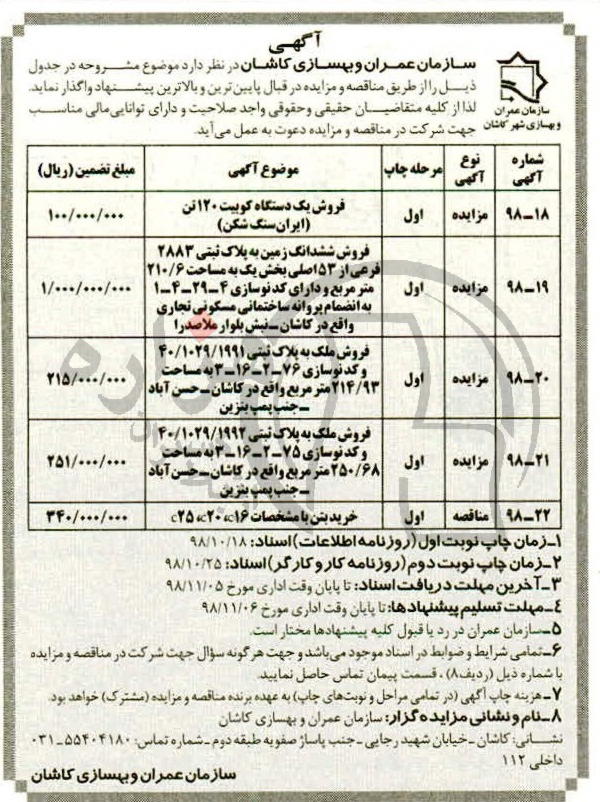 آگهی
سازمان عمران و بهسازی کاشان در نظر دارد موضوع مشروحه در جدول
ذیل را از طریق مناقصه و مزایده در قبال پایین‌ترین و بالاترین پیشنهاد واگذار نماید.
لذا از کلیه متقاضیان حقیقی و حقوقی واجد صلاحیت و دارای توانایی مالی مناسب
جهت شرکت در مناقصه و مزایده دعوت به عمل می‌آید.
سازمان عمران
و بهسازی شهر کاشان
شماره آگهی | نوع آگهی | مرحله چاپ | موضوع آگهی | مبلغ تضمین (ریال)
۹۸-۱۸ | مزایده | اول | فروش یک دستگاه کوبیت ۱۲۰ تن | ۱۰۰/۰۰۰/۰۰۰
(ایران سنگ شکن)
۹۸-۱۹ | مزایده | اول | فروش ششدانگ زمین به پلاک ثبتی ۲۸۸۳ | ۱/۰۰۰/۰۰۰/۰۰۰
فرعی از ۵۳ اصلی بخش یک به مساحت ۲۱۰/۶
متر مربع و دارای کد نوسازی ۴-۲۹-۴-۱
به انضمام پروانه ساختمانی مسکونی تجاری
واقع در کاشان - نبش بلوار ملاصدرا
۹۸-۲۰ | مزایده | اول | فروش ملک به پلاک ثبتی ۴۰/۱۰۲۹/۱۹۹۱ | ۲۱۵/۰۰۰/۰۰۰
و کد نوسازی ۷۶-۲-۱۶-۳ به مساحت
۲۱۴/۹۳ متر مربع واقع در کاشان - حسن آباد
- جنب پمپ بنزین
۹۸-۲۱ | مزایده | اول | فروش ملک به پلاک ثبتی ۴۰/۱۰۲۹/۱۹۹۲ | ۲۵۱/۰۰۰/۰۰۰
و کد نوسازی ۷۵-۲-۱۶-۳ به مساحت
۲۵۰/۶۸ متر مربع واقع در کاشان - حسن آباد
- جنب پمپ بنزین
۹۸-۲۲ | مناقصه | اول | خرید بتن با مشخصات c۱۶، c۲۰، c۲۵ | ۳۴۰/۰۰۰/۰۰۰
۱- زمان چاپ نوبت اول (روزنامه اطلاعات) اسناد: ۹۸/۱۰/۱۸
۲- زمان چاپ نوبت دوم (روزنامه کار و کارگر) اسناد: ۹۸/۱۰/۲۵
۳- آخرین مهلت دریافت اسناد: تا پایان وقت اداری مورخ ۹۸/۱۱/۰۵
۴- مهلت تسلیم پیشنهادها: تا پایان وقت اداری مورخ ۹۸/۱۱/۰۶
۵- سازمان عمران در رد یا قبول کلیه پیشنهادها مختار است.
۶- تمامی شرایط و ضوابط در اسناد موجود می‌باشد و جهت هرگونه سؤال جهت شرکت در مناقصه و مزایده
با شماره ذیل (ردیف ۸)، قسمت پیمان تماس حاصل نمایید.
۷- هزینه چاپ آگهی (در تمامی مراحل و نوبت‌های چاپ) به عهده برنده مناقصه و مزایده (مشترک) خواهد بود.
۸- نام و نشانی مزایده گزار: سازمان عمران و بهسازی کاشان
نشانی: کاشان - خیابان شهید رجایی - جنب پاساژ صفویه طبقه دوم - شماره تماس: ۵۵۴۰۴۱۸۰-۰۳۱
داخلی ۱۱۲
سازمان عمران و بهسازی کاشان